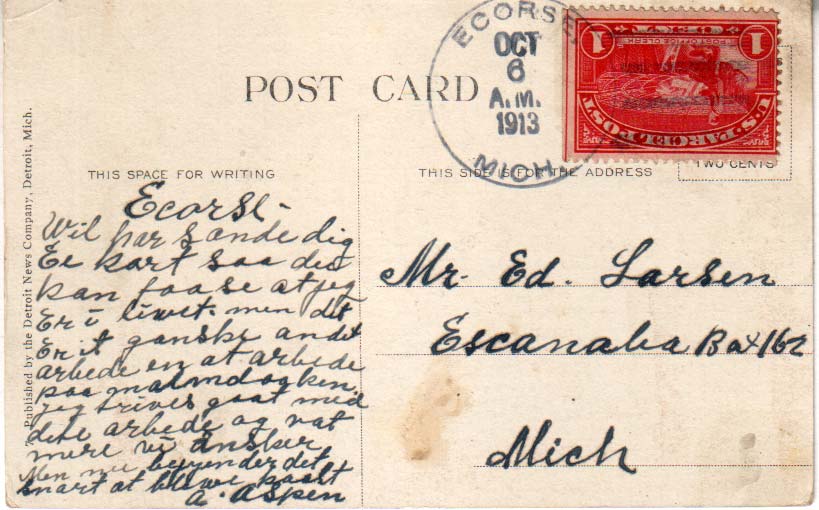 POST CARD
ECORSE,
OCT
6
A.M.
1913
MICH.
1
POST OFFICE CLERK
1
U.S. PARCEL POST
TWO CENTS
THIS SPACE FOR WRITING
THIS SIDE IS FOR THE ADDRESS
Published by the Detroit News Company, Detroit, Mich.
Ecorse-
Wil bar sande dig
Ee kart saa du
kan faa se at jeg
Er i liwet. men det
Er it ganske andet
arbede en at arbede
paa malmdogken.
jeg trives gaat med
dete arbede og vat
mere vi ønsker
Men nu begynder det
snart at bliwe kaalt
a. Aspen
Mr. Ed. Larsen
Escanaba Box 162
Mich